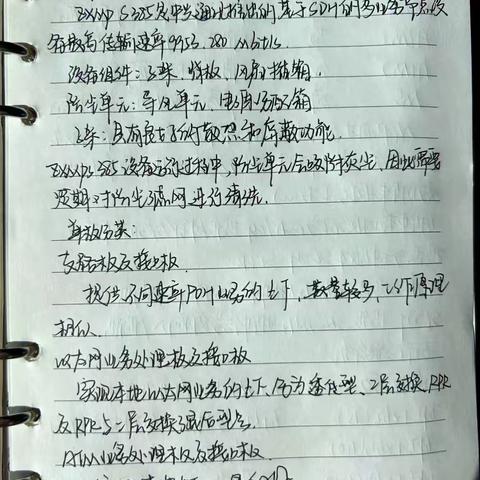 ZXMP S385是中兴通讯推出的基于SDH的多业务节点设
备最高传输速率9953.280 Mbit/s
设备组件:子架,背板,风扇插箱.
防尘单元:导风单元,电源分配箱
子架:具有良好的散热和屏蔽功能.
ZXMP S385设备运行过程中,防尘单元会吸附灰尘,因此需要
定期对防尘滤网进行清洗.
单板分类:
支路板及接口板.
提供不同速率PDH业务的上下,数量较多,工作原理
相似.
以太网业务处理板及接口板
实现本地以太网业务的上下,分为透传型、二层交换、RPR
及RPR与二层交换混合型.
ATM业务处理板及接口板.